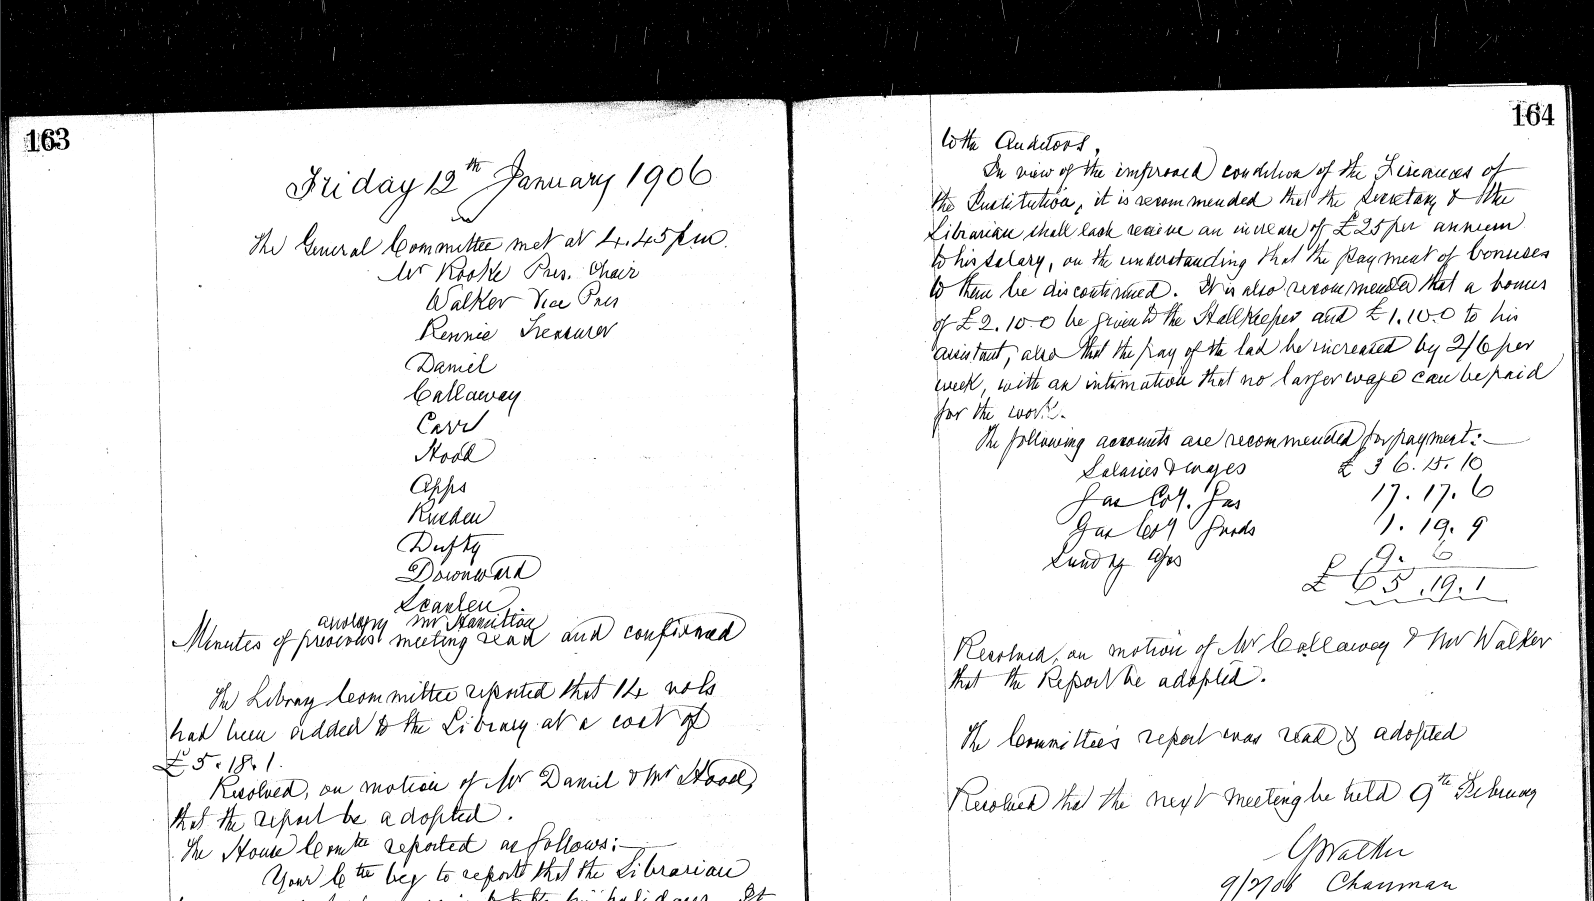 163
Friday 12th January 1906
The General Committee met at 4.45 pm
Mr Rooke Pres. Chair
Walker Vice Pres
Rennie Treasurer
Daniel
Callaway
Carr
Hood
Apps
Rusden
Dufty
Downward
Scanlen
apology Mr Hamilton
Minutes of previous meeting read and confirmed
The Library Committee reported that 14 vols
had been added to the Library at a cost of
£5.18.1.
Resolved, on motion of Mr Daniel & Mr Hood,
that the report be adopted.
The House Comtee reported as follows:—
Your Ctee beg to report that the Librarian
holidays
164
to the Auditors.
In view of the improved condition of the Finances of
the Institution, it is recommended that the Secretary & the
Librarian shall each receive an increase of £25 per annum
to his salary, on the understanding that the payment of bonuses
to them be discontinued. It is also recommended that a bonus
of £2.10.0 be given to the Hallkeeper and £1.10.0 to his
assistant, also that the pay of the lad be increased by 2/6 per
week, with an intimation that no larger wage can be paid
for the work.
The following accounts are recommended for payment:—
Salaries & wages £36.15.10
Gas Coy. Gas 17.17.6
Gas Coy Goods 1.19.9
Sundry a/cs 9.6
£65.19.1
Resolved, on motion of Mr Callaway & Mr Walker
that the Report be adopted.
The Committee's report was read & adopted
Resolved that the next meeting be held 9th February
G Walker
9/2/06 Chairman